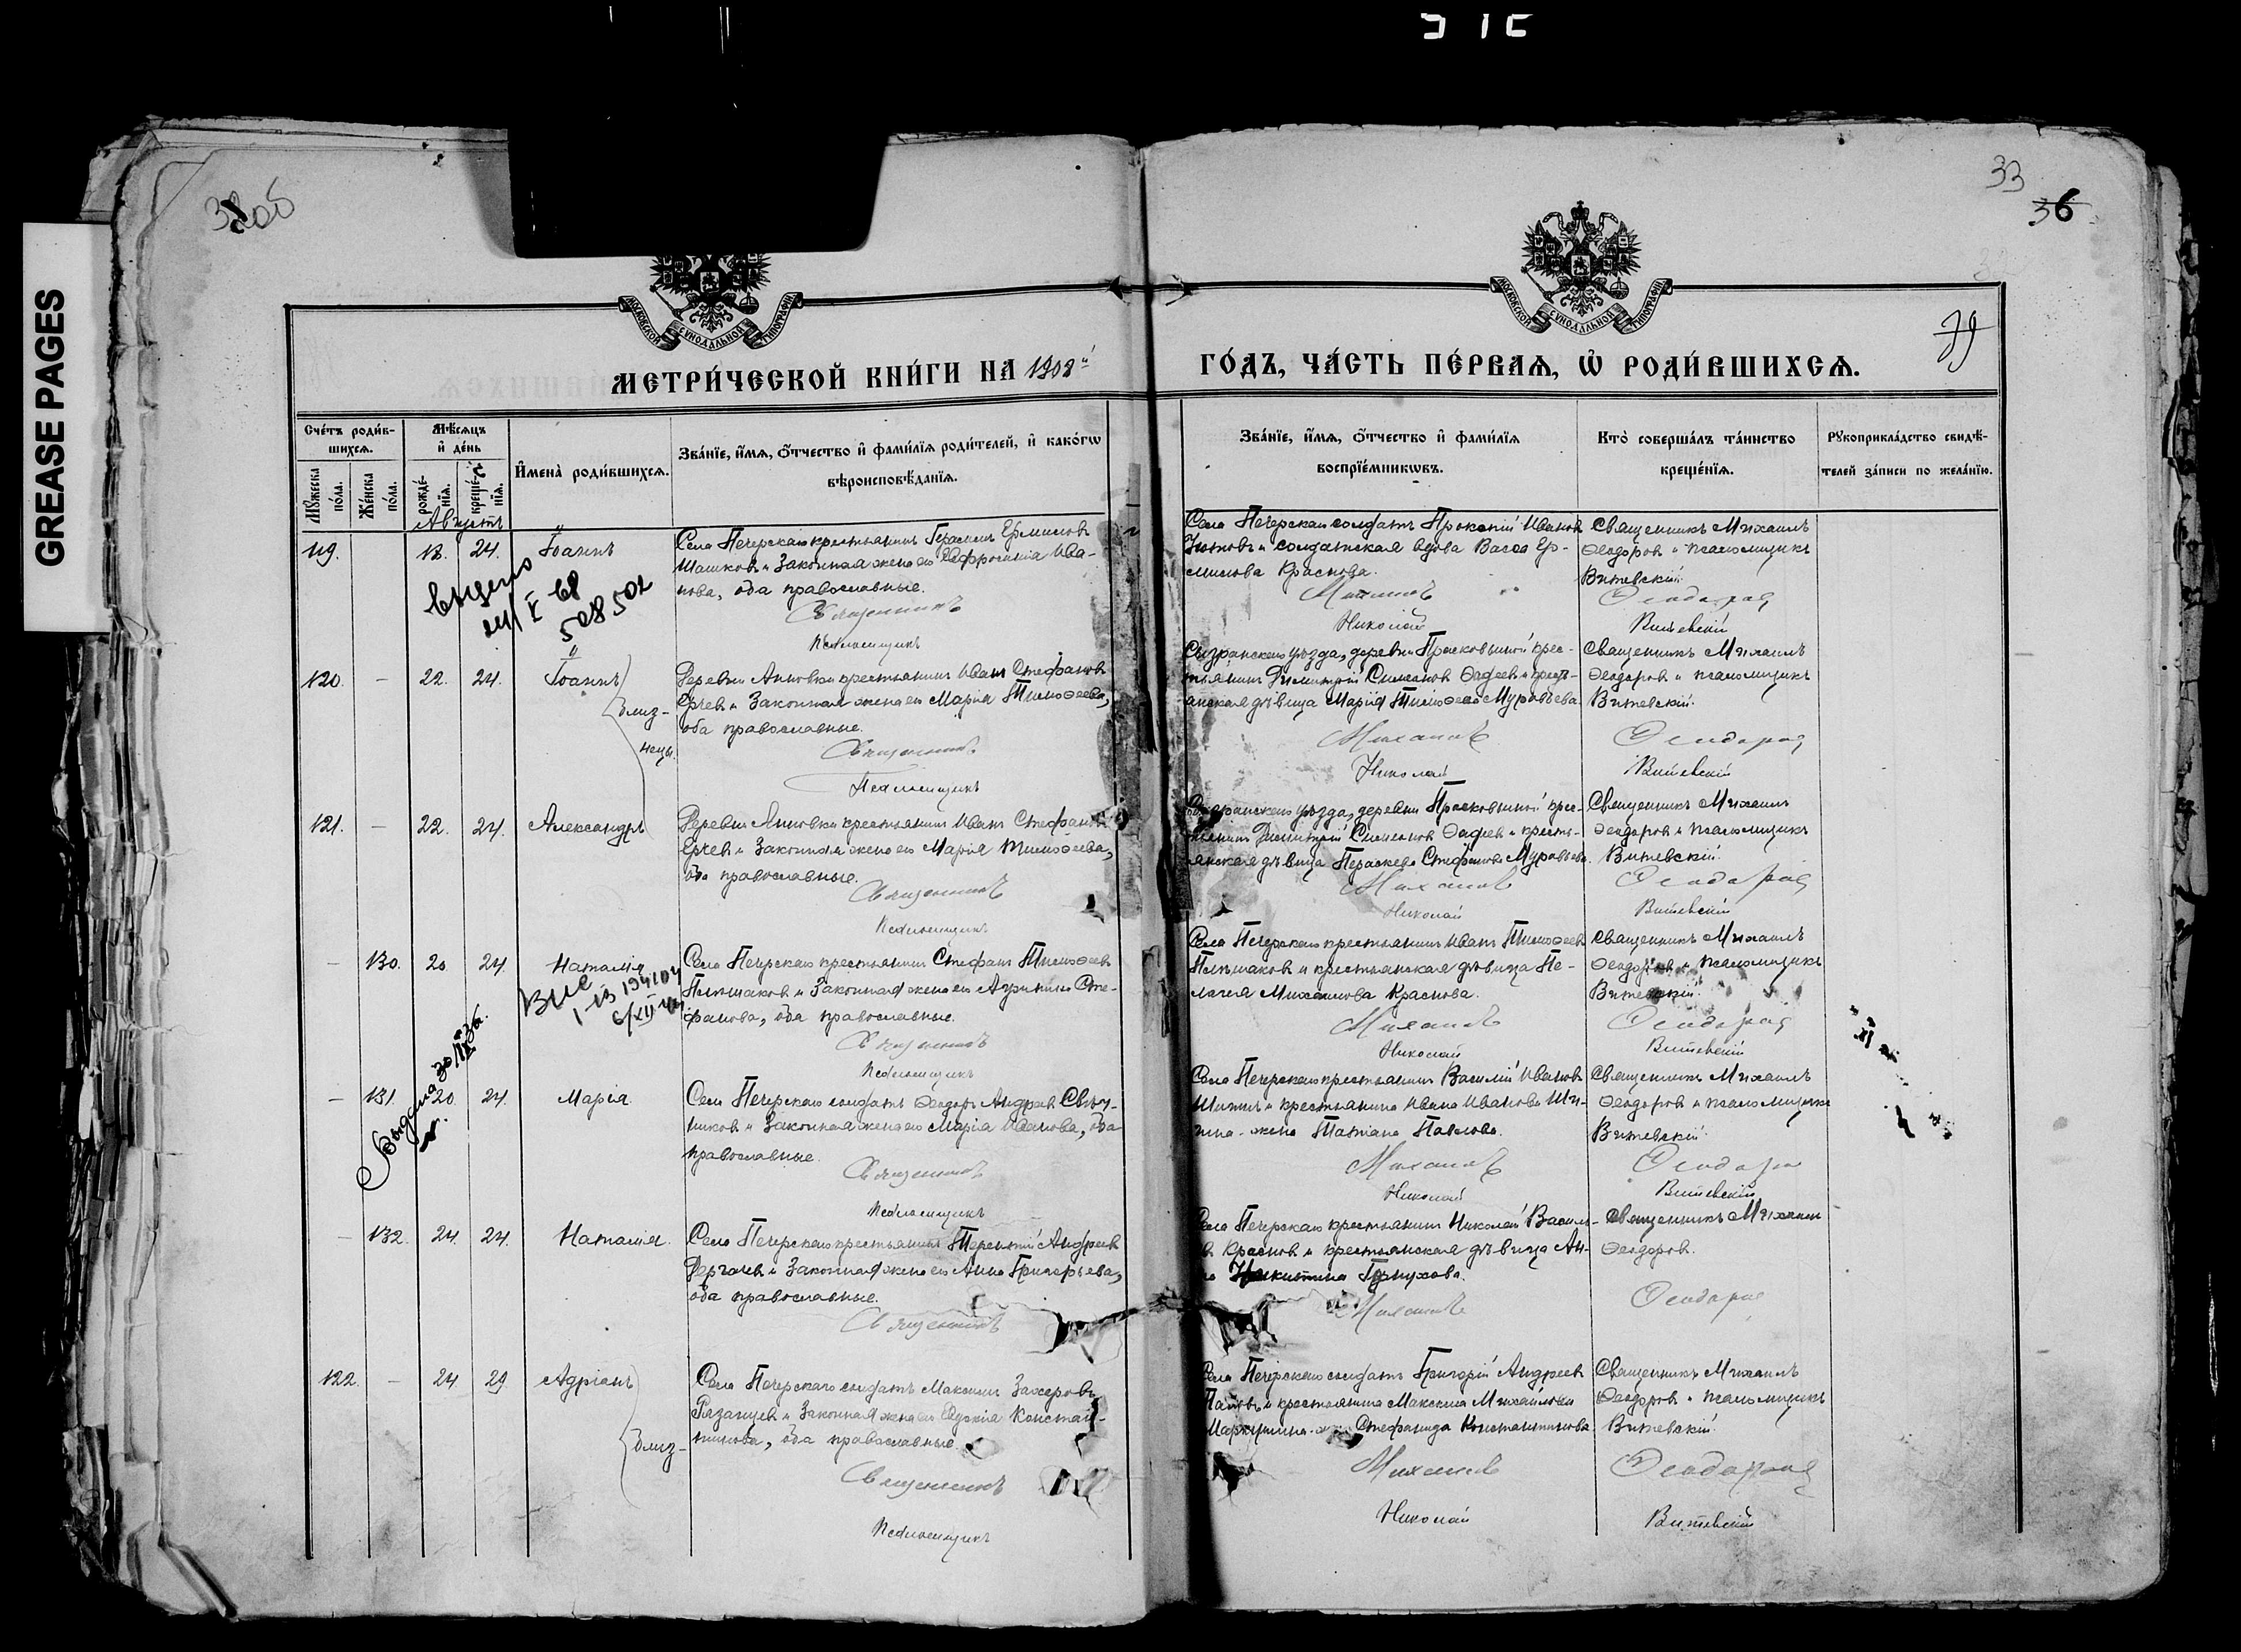 GREASE PAGES
33
36
МОСКОВСКОЙ СѴНОДАЛЬНОЙ ТИПОГРАФІИ
МОСКОВСКОЙ СѴНОДАЛЬНОЙ ТИПОГРАФІИ
МЕТРИ́ЧЕСКОЙ КНИ́ГИ НА 1908й
ГО́ДЪ, ЧА́СТЬ ПЕ́РВАЯ, Ѡ РОДИ́ВШИХСЯ.
Сче́тъ роди́в-
шихся.
Мꙋжеска по́ла.
Же́нска по́ла.
Мѣ́сяцъ
и́ де́нь
рожде́-нїя.
креще́-нїя.
И҆мена̀ роди́вшихся.
Зва́нїе, и҆́мя, ѻ҆́тчество и҆ фами́лїя роди́телей, и҆ како́гѡ
вѣроисповѣ́данїя.
Зва́нїе, и҆́мя, ѻ҆́тчество и҆ фами́лїя
воспрїе́мникѡвъ.
Кто̀ соверша́лъ та́инство
креще́нїя.
Рꙋкоприкла́дство свидѣ́-
телей за́писи по жела́нїю.
Августъ
119. 18. 24. Іоаннъ
Села Печерскаго крестьянинъ Герасимъ Ермиловъ
Шашковъ и законная жена его Евфросинія Ива-
нова, оба православные.
Священникъ
Псаломщикъ
Села Печерскаго солдатъ Прокопій Ивановъ
и солдатская вдова Васса Ер-
милова Краснова.
Михаилъ
Николай
Священникъ Михаилъ
Ѳеодоровъ и псаломщикъ
Витевскій.
Ѳеодоровъ
Витевскій
120. - 22. 24. Іоаннъ
близ-
нецы.
Деревни Анновки крестьянинъ Иванъ Стефановъ
Ерчевъ и законная жена его Марія Тимоѳеева,
оба православные.
Священникъ
Псаломщикъ
Сызранскаго уѣзда, деревни Прасковьиной крес-
тьянинъ Димитрій Симеоновъ Ѳадеевъ и кресть-
янская дѣвица Марія Тимоѳеева Муравьева.
Михаилъ
Николай
Священникъ Михаилъ
Ѳеодоровъ и псаломщикъ
Витевскій.
Ѳеодоровъ
Витевскій
121. - 22. 24. Александръ
Деревни Анновки крестьянинъ Иванъ Стефановъ
Ерчевъ и законная жена его Марія Тимоѳеева,
оба православные.
Священникъ
Псаломщикъ
Сызранскаго уѣзда, деревни Прасковьиной крес-
тьянинъ Димитрій Симеоновъ Ѳадеевъ и кресть-
янская дѣвица Параскева Стефанова Муравьева.
Михаилъ
Николай
Священникъ Михаилъ
Ѳеодоровъ и псаломщикъ
Витевскій.
Ѳеодоровъ
Витевскій
- 130. 20 24. Наталія
Села Печерскаго крестьянинъ Стефанъ Тимоѳеевъ
и законная жена его Агриппина Сте-
фанова, оба православные.
Священникъ
Псаломщикъ
Села Печерскаго крестьянинъ Иванъ Тимоѳеевъ
и крестьянская дѣвица Пе-
лагея Михаилова Краснова.
Михаилъ
Николай
Священникъ Михаилъ
Ѳеодоровъ и псаломщикъ
Витевскій.
Ѳеодоровъ
Витевскій
Выдана
- 131. 20. 24. Марія.
Села Печерскаго солдатъ Ѳеодоръ Андреевъ Свѣч-
никовъ и законная жена его Марія Иванова, оба
православные.
Священникъ
Псаломщикъ
Села Печерскаго крестьянинъ Василій Ивановъ
Шининъ и крестьянина Ивана Иванова Ши-
нина жена Татіана Павлова.
Михаилъ
Николай
Священникъ Михаилъ
Ѳеодоровъ и псаломщикъ
Витевскій.
Ѳеодоровъ
Витевскій
- 132. 24. 24. Наталія.
Села Печерскаго крестьянинъ Терентій Андреевъ
Дергачевъ и законная жена его Анна Григорьева,
оба православные.
Священникъ
Села Печерскаго крестьянинъ Николай Василь-
евъ Красновъ и крестьянская дѣвица Ан-
на Никитина
Михаилъ
Священникъ Михаилъ
Ѳеодоровъ.
Ѳеодоровъ
122. - 24 29 Адріанъ
близ-
Села Печерскаго солдатъ Максимъ Захаровъ
Рязанцевъ и законная жена его Евдокія Констан-
тинова, оба православные.
Священникъ
Псаломщикъ
Села Печерскаго солдатъ Григорій Андреевъ
и крестьянина Максима Михайлова
Стефанида Константинова
Михаилъ
Николай
Священникъ Михаилъ
Ѳеодоровъ и псаломщикъ
Витевскій.
Ѳеодоровъ
Витевскій